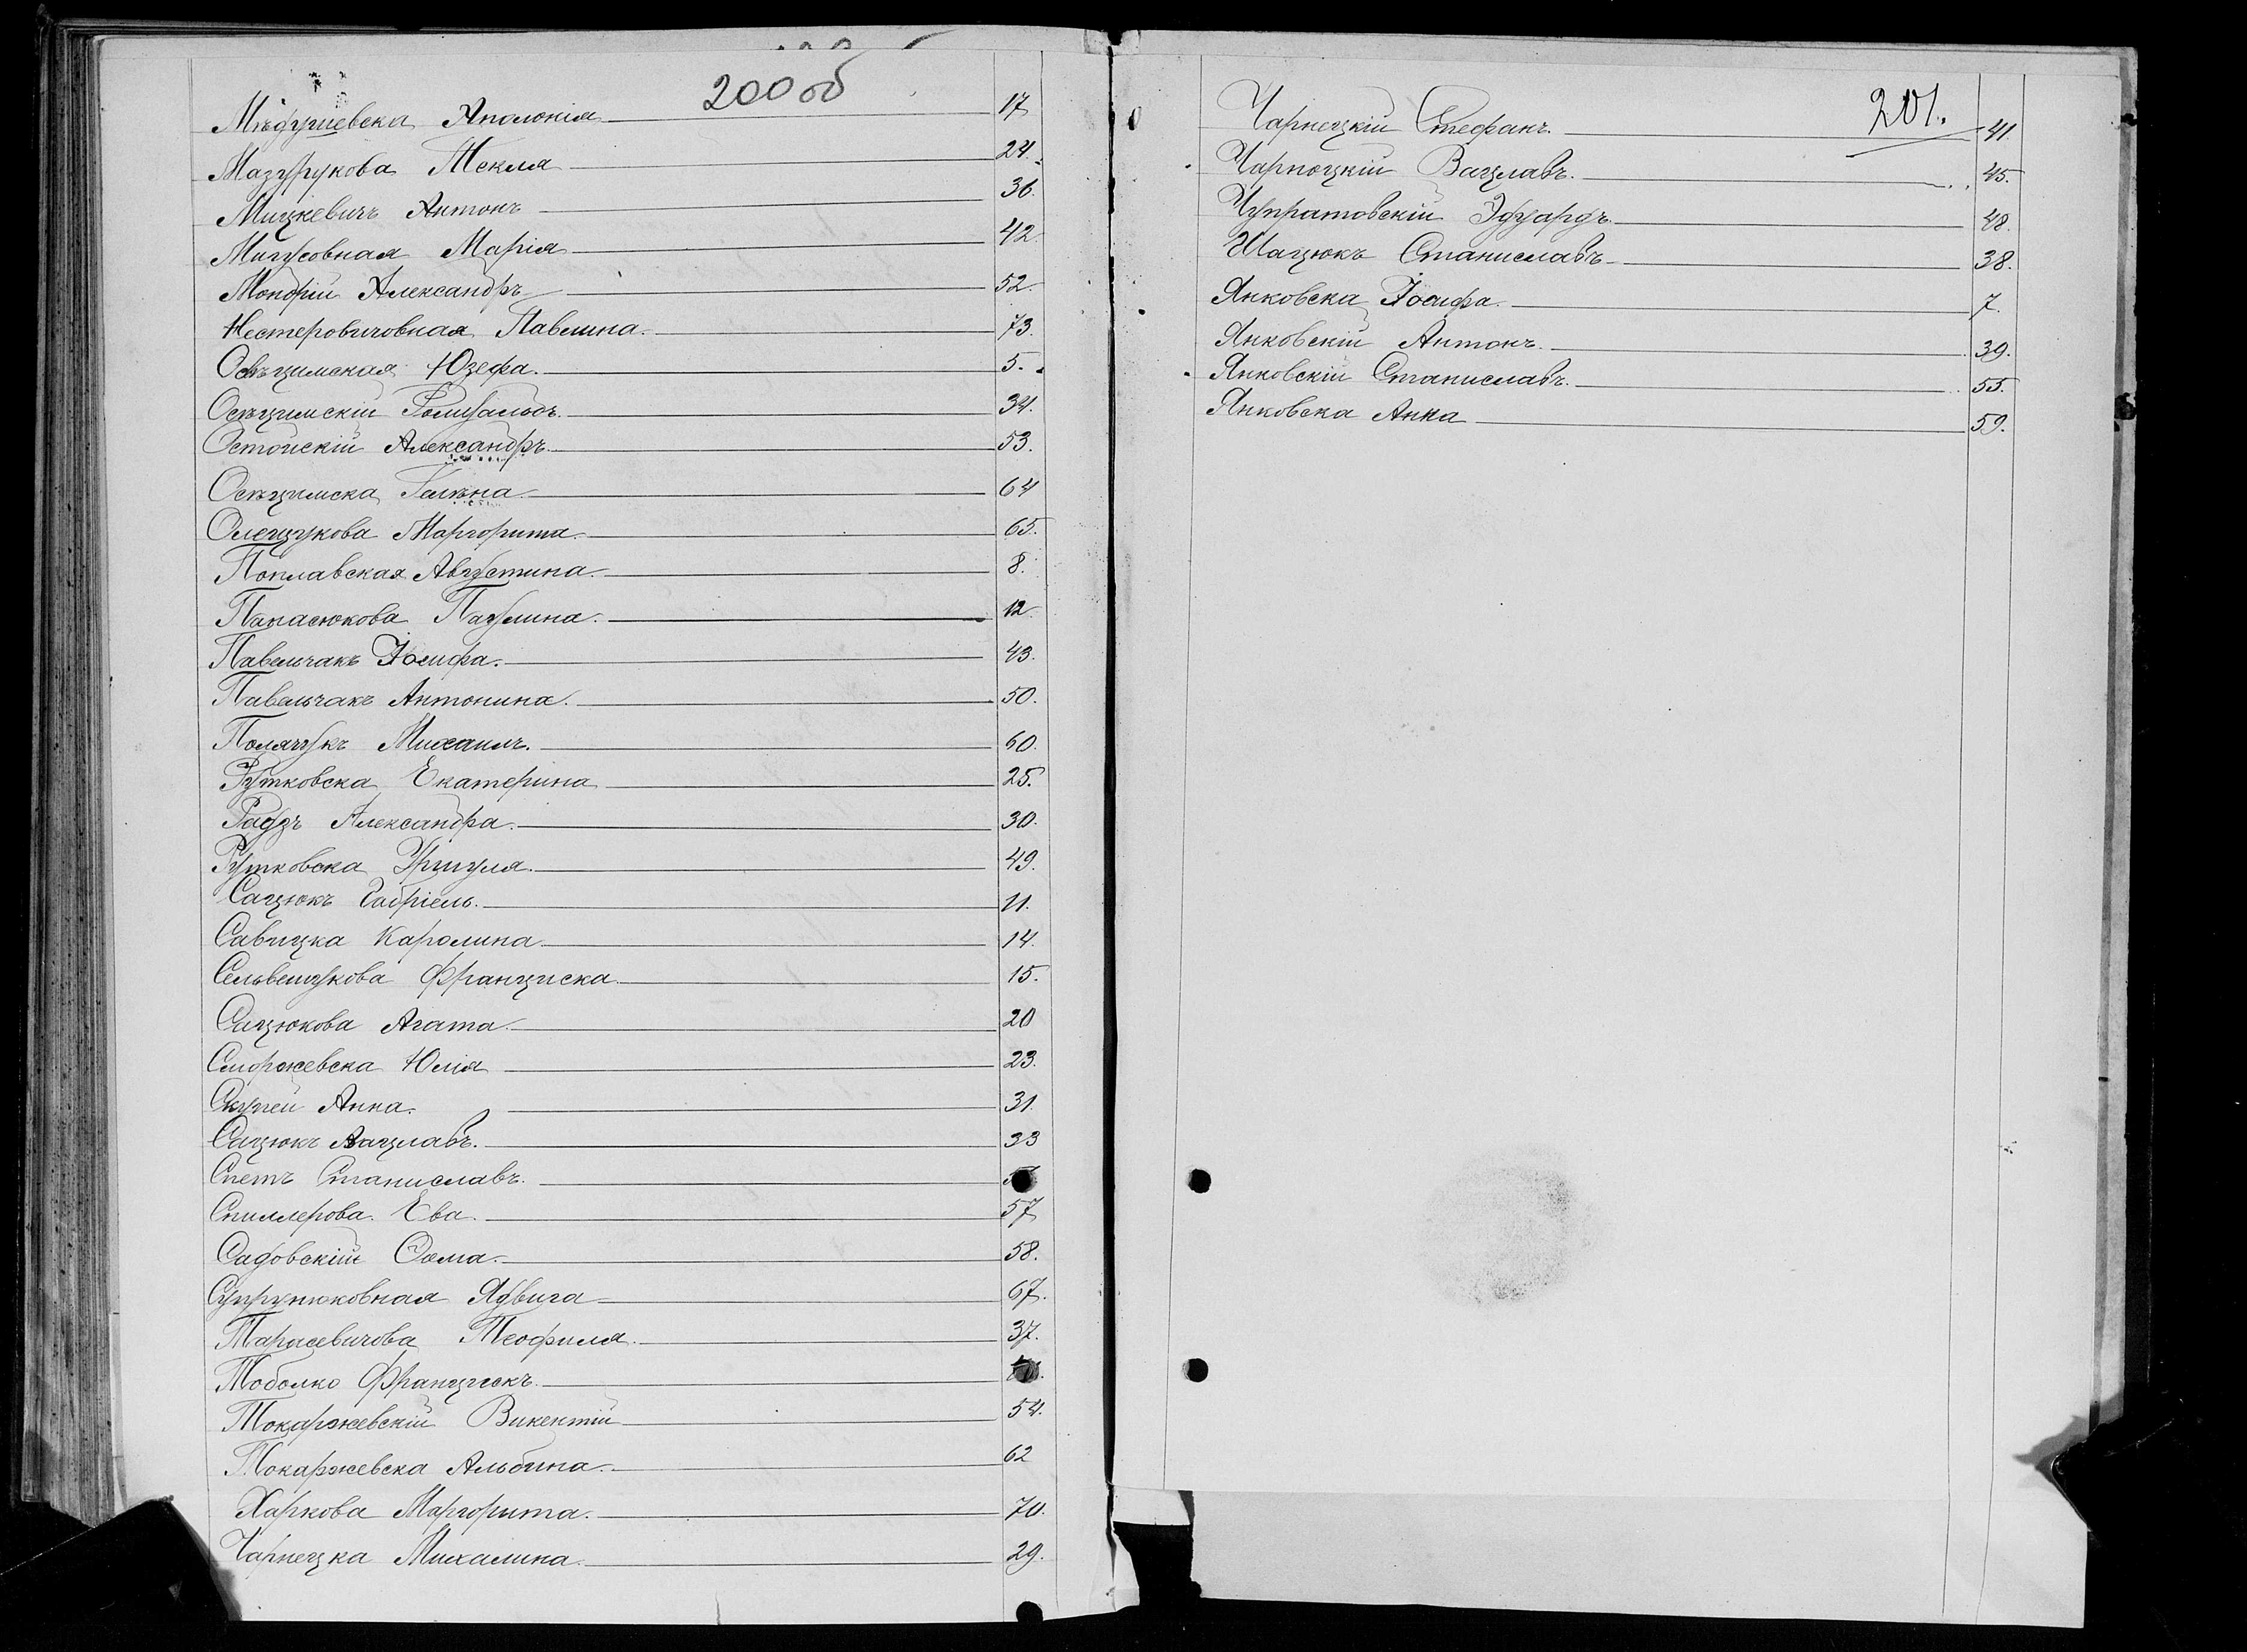 200 об
Мѣдушевска Аполонія 17
Мазурукова Текля 24.
Мицкевичъ Антонъ 36.
Мигусовная Марія 42.
Мондрій Александръ 52.
Нестеровичовная Павлина. 73.
Осѣцимская Юзефа. 5.
Осѣцимскій Ромуальдъ. 34.
Остойскій Александръ. 53.
Осѣцимска Гелѣна. 64
Олещукова Маргорита. 65.
Поплавская Августина. 8.
Панасюкова Паулина. 12
Павельчакъ Іосифа. 43.
Павельчакъ Антонина. 50.
Полячукъ Михаилъ. 60.
Рутковска Екатерина 25.
Радзъ Александра. 30.
Рутковска Уршуля. 49.
Сацюкъ Габріель. 11.
Савицка Каролина 14.
Сельвещукова Франциска. 15.
Сацюкова Агата. 20
Сморжевска Юлія 23.
Скупей Анна. 31.
Сацюкъ Вацлавъ. 33
Спетъ Станиславъ.
Спиллерова Ева. 57
Садовскій Ѳома. 58.
Супрунюковная Ядвига 67.
Тарасевичова Теофиля. 37.
Тоболко Францискъ.
Токаржевскій Викентій 54.
Токаржевска Альбина. 62
Харкова Маргорита. 70.
Чарнецка Михалина. 29.
201.
Чарнецкій Стефанъ. 41.
Чарноцкій Вацлавъ. 45.
Чупратовскій Эдуардъ. 48.
Шацюкъ Станиславъ 38.
Янковска Іосифа. 7.
Янковскій Антонъ. 39.
Янковскій Станиславъ. 55.
Янковска Анна 59.